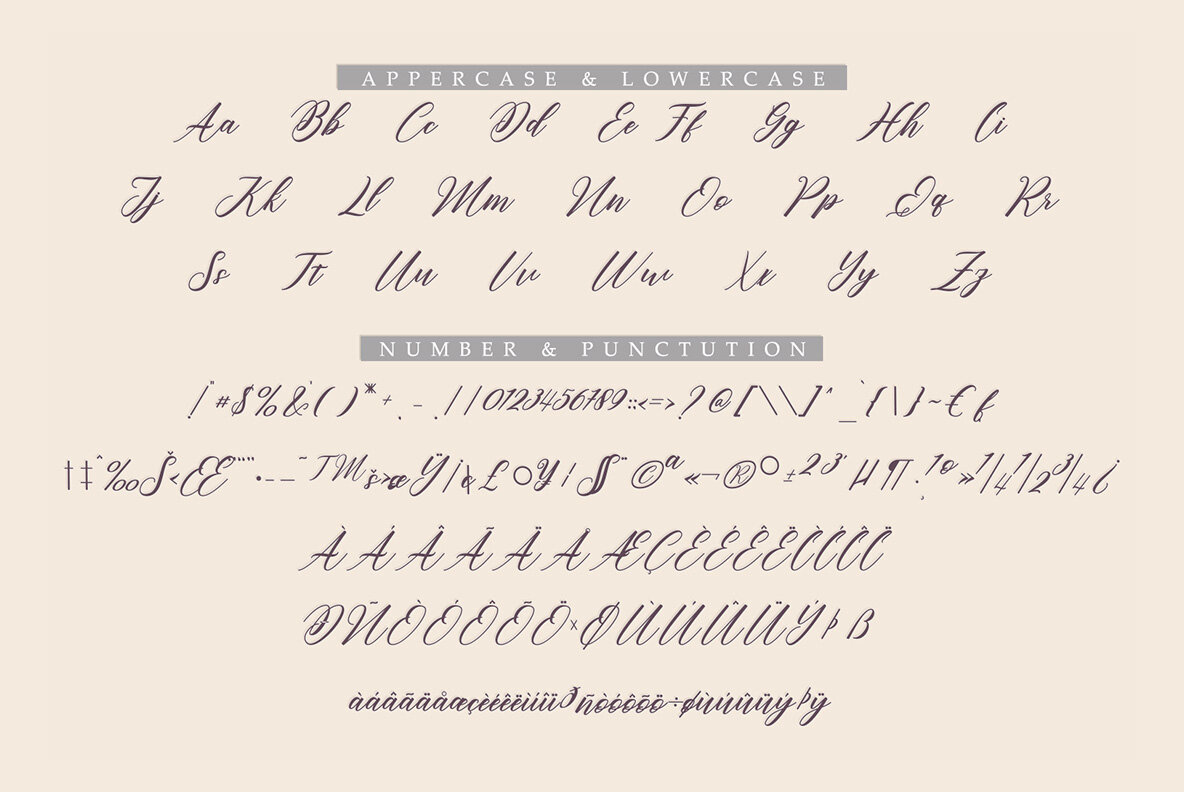 APPERCASE & LOWERCASE
Aa Bb Cc Dd Ee Ff Gg Hh Ii
Jj Kk Ll Mm Nn Oo Pp Qq Rr
Ss Tt Uu Vv Ww Xx Yy Zz
NUMBER & PUNCTUTION
!"#$%&'()*+,-./0123456789:;<=>?@[\\]^_`{|}~€ƒ
†‡ˆ‰Š‹Œ“”•–—˜™š›œŸ¡¢£¤¥¦§¨©ª«¬®¯°±²³´µ¶·¸¹º»¼½¾¿
ÀÁÂÃÄÅÆÇÈÉÊËÌÍÎÏ
ÐÑÒÓÔÕÖ×ØÙÚÛÜÝÞß
àáâãäåæçèéêëìíîïðñòóôõö÷øùúûüýþÿ